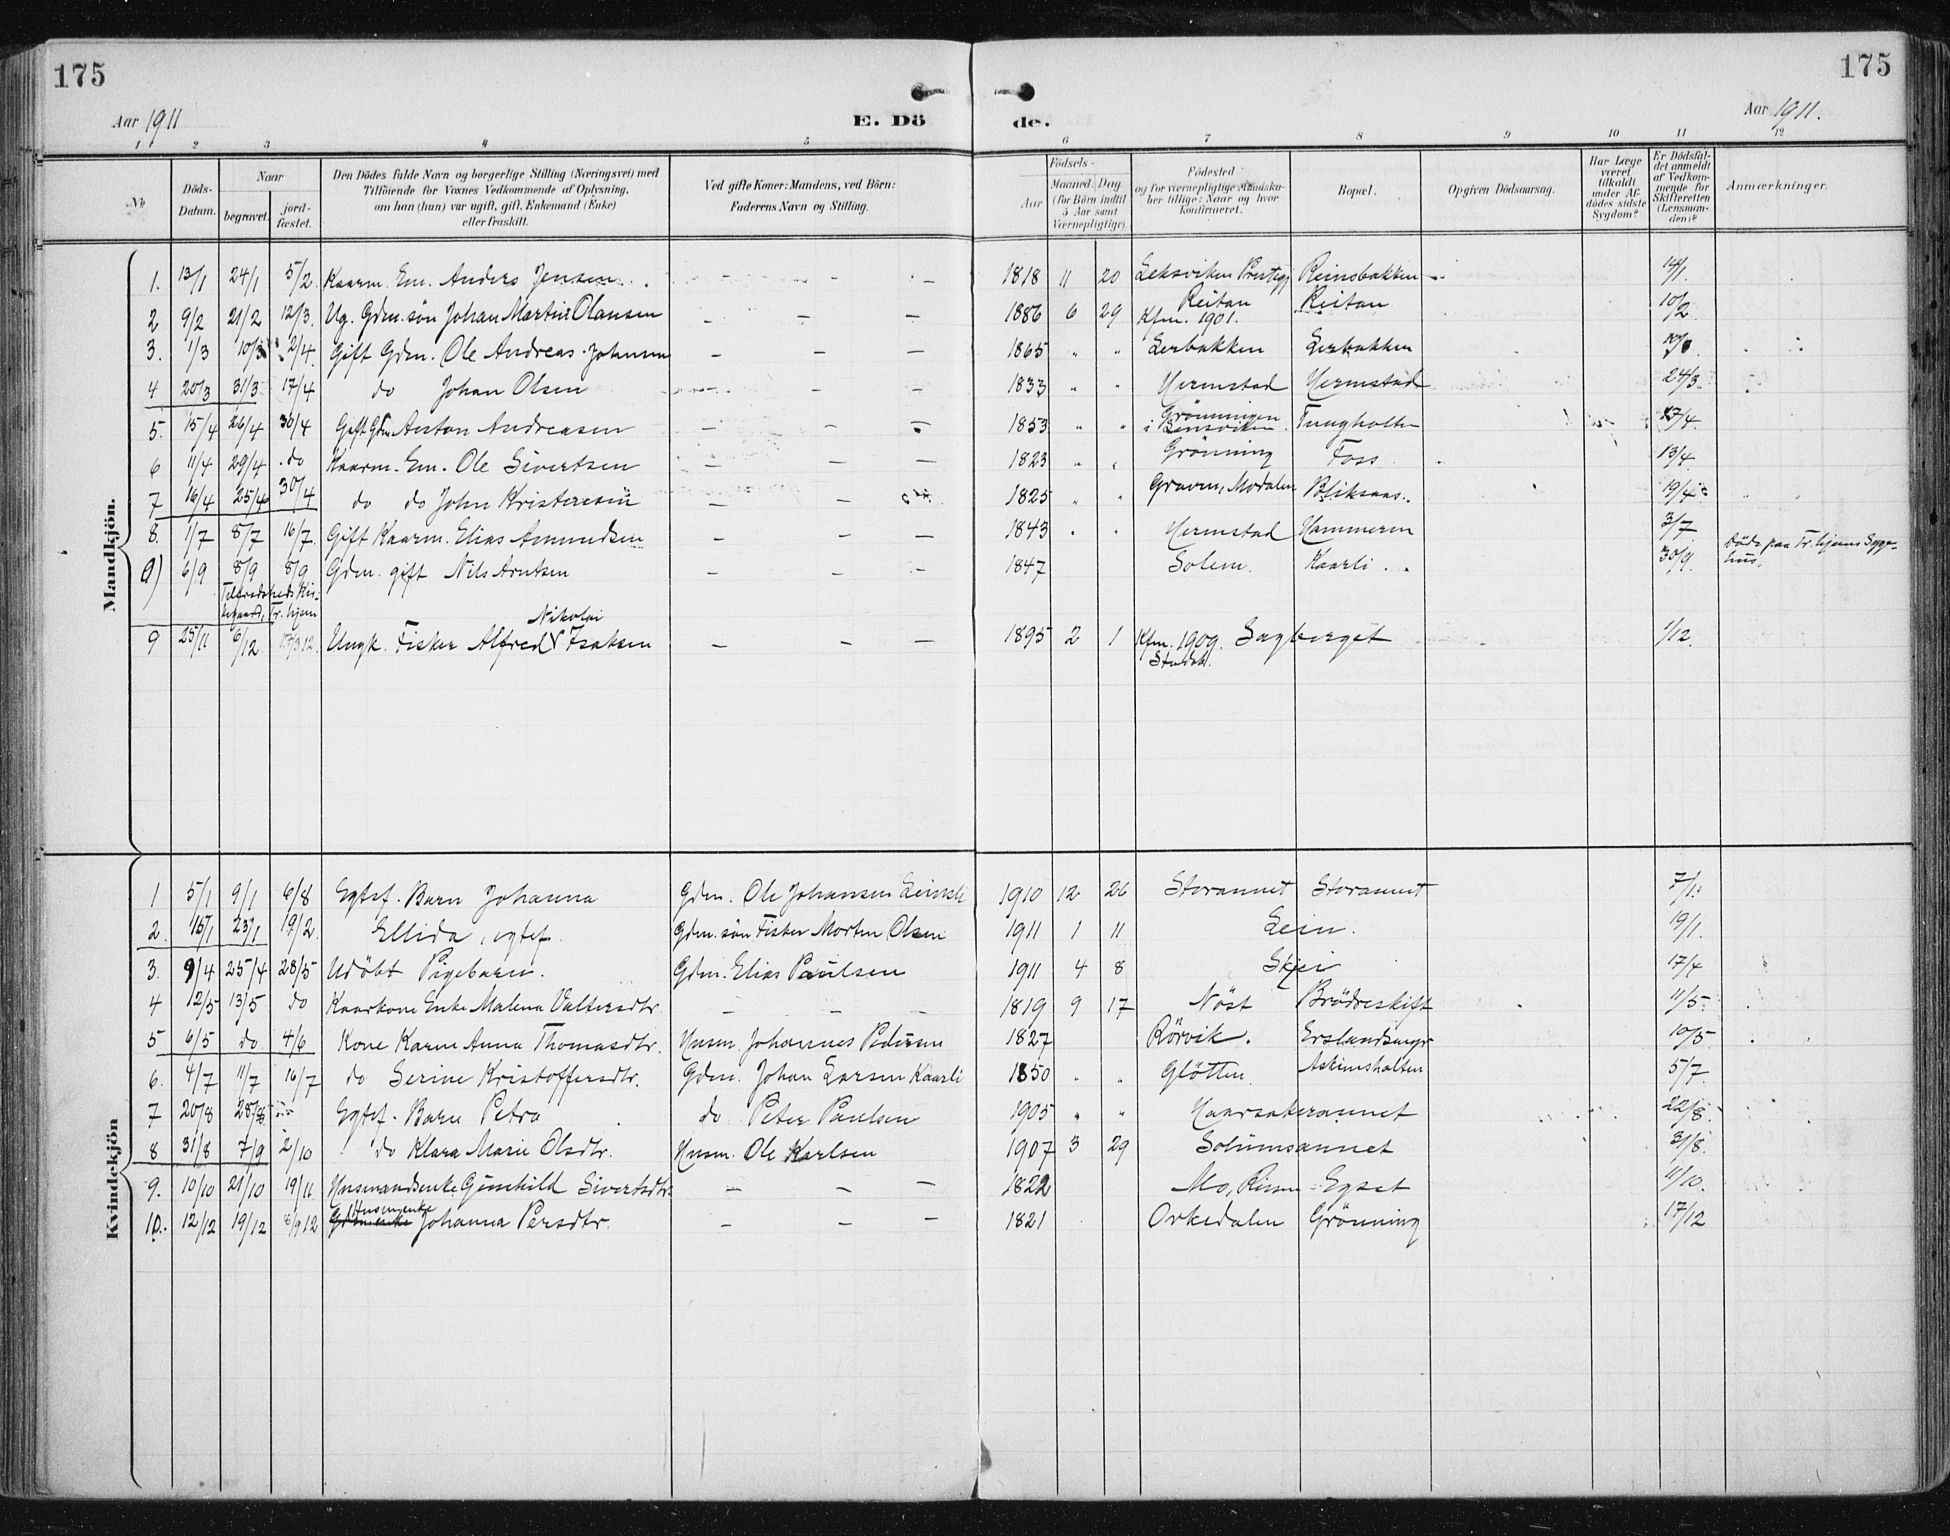 175
175
Aar 1911
E. Dö
de.
Aar 1911.
1 2 3 4 5 6 7 8 9 10 11 12
№
Döds-Datum.
Naar
begravet.
jord-fæstet.
Den Dödes fulde Navn og borgerlige Stilling (Næringsvei) med
Tilföiende for Voxnes Vedkommende af Oplysning,
om han (hun) var ugift, gift, Enkemand (Enke)
eller fraskilt.
Ved gifte Koner: Mandens, ved Börn:
Faderens Navn og Stilling.
Födsels-
Aar
Maaned. Dag.
(for Börn indtil
5 Aar samt
Værnepligtige)
Födested
og for værnepligtige Mandska-
ber tillige: Naar og hvor
konfirmeret.
Bopæl.
Opgiven Dödsaarsag.
Har Læge
været
tilkaldt
under Af-
dödes sidste
Sygdom?
Er Dödsfal-
det anmeldt
af Vedkom-
mende for
Skifteretten
(Lensman-
den)?
Anmærkninger.
Mandkjön.
1. 13/1 24/1 5/2. Kaarm. Em. Anders Jensen. - - - 1818 11 20 Leksviken Reinsbakken 14/1.
2 9/2 21/2 12/3. Ug. Gdm. sön Johan Martin Olausen - - - 1886 6 29 Reitan Kfm. 1901. Reitan 10/2
3. 1/3 10/3 2/4. Gift Gdm. Ole Andreas Johnsen - - - 1865 " " Lerbakken Lerbakken
4 20/3 31/3 17/4 do Johan Olsen - - - 1833 " " Hermstad Hermstad 24/3.
5. 15/4 26/4 30/4 Gift Gdm. Anton Andreasen - - - 1853 " " Grönningen i Lensviken. 17/4.
6 11/4 29/4 do Kaarm. Em. Ole Sivertsen - - - 1823 " " Grönning Foss 13/4
7 16/4 25/4 30/4 do do John - - 1825 " " Graven, Modalen Bliksaas. 19/4
8. 1/7 8/7 16/7. Gift Kaarm. Elias Amundsen - - - 1843 " " Hermstad Hammeren 3/7
9) 6/9 8/9 8/9 Gdm. gift Nils Arntsen - - - 1847 Solem. Kaarli 30/9. Döde paa Tr.hjems Syge-
hus.
Tilfredsheds Kir-
kegaard, Tr.hjem
Nikolai
9 25/11 6/12. 17/3 12. Ungk. Fisker Alfred V Isaksen - - - 1895 2 1 Kfm. 1909. Sagberget 1/12.
Stadsb.
Kvindekjön
1 5/1 9/1 6/8 Egtef. Barn Johanna Gdm. Ole Johansen 1910 12 26 Storannet Storannet 7/1.
2. 15/1 23/1 19/2. Ellida, egtef. Gdm. sön Fisker Morten Olsen 1911 1 11 Lein. 19/1.
3. 9/4 25/4 28/5 Udöbt Pigebarn. Gdm. Elias Paulsen 1911 4 8 Skjei 17/4
4 12/5 13/5 do Kaarkone Enke Malena Valtersdtr. - - - 1819 9 17 Nöst Brödreskift 11/5.
5 6/5 do 4/6 Kone Karen Anna Thomasdtr. Husm. Johannes Pedersen 1827 Rörvik. Erslandsmyr 10/5.
6. 4/7 11/7 16/7 do Serine Kristoffersdtr. Gdm. Johan Larsen Kaarli 1850 " " Glötten. Askimsholten 5/7.
7 20/8 28/8 Egtef. Barn Petra do Peter Paulsen 1905 " " Haarsakerannet 22/8.
8 31/8 7/9 2/10 do Klara Marie Olsdtr. Husm. Ole Karlsen 1907 3 29 Solumsannet 31/8.
9. 10/10 21/10 19/11 Husmandsenke Gunhild Sivertsdtr. - - - 1822 Mo, Rissen Egset 11/10.
10. 12/12 19/12 8/9 12 Gdmenke Husm.enke Johanna Persdtr. - - - 1821 Orkedalen Grönning 17/12